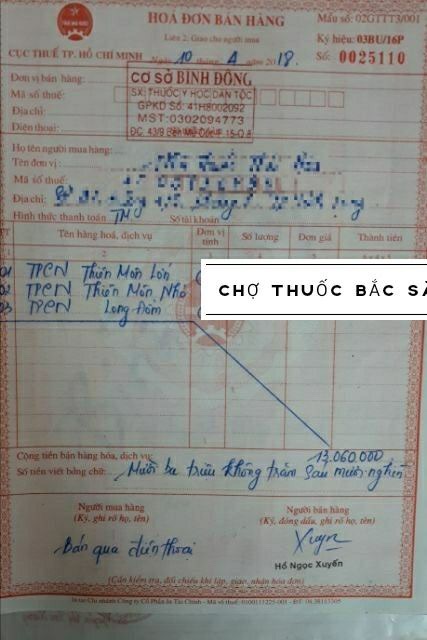 HOÁ ĐƠN BÁN HÀNG
Mẫu số: 02GTTT3/001
Liên 2: Giao cho người mua
Ký hiệu: 03BU/16P
CỤC THUẾ TP. HỒ CHÍ MINH
Ngày 10 tháng 4 năm 2018.
Số: 0025110
Đơn vị bán hàng:
CƠ SỞ BÌNH ĐÔNG
Mã số thuế:
SX: THUỐC Y HỌC DÂN TỘC
GPKD Số: 41H8002092
Địa chỉ:
MST: 0302094773
Điện thoại:
ĐC: 43/9 Bến Mễ Cốc P.15-Q.8
Họ tên người mua hàng:
Tên đơn vị:
Mã số thuế:
Địa chỉ:
Hình thức thanh toán: TM Số tài khoản:
Tên hàng hoá, dịch vụ Đơn vị tính Số lượng Đơn giá Thành tiền
01 TPCN Thiên Môn Lớn
02 TPCN Thiên Môn Nhỏ
03 TPCN Long Đởm
CHỢ THUỐC BẮC SÀ
Cộng tiền bán hàng hóa, dịch vụ: 13.060.000
Số tiền viết bằng chữ: Mười ba triệu không trăm sáu mươi nghìn
Người mua hàng
(Ký, ghi rõ họ, tên)
Người bán hàng
(Ký, đóng dấu, ghi rõ họ, tên)
Bán qua điện thoại
Xuyến
Hồ Ngọc Xuyến
(Cần kiểm tra, đối chiếu khi lập, giao, nhận hóa đơn)